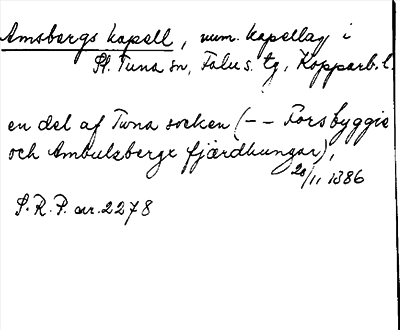 Amsbergs kapell, num. kapellag i
St. Tuna sn, Falu s. tg, Kopparb. l.
en del af Tuna socken (– – Forsbyggie
och Ambulzbergx fjærdhungar),
28/11 1386
S.R.P. nr. 2278